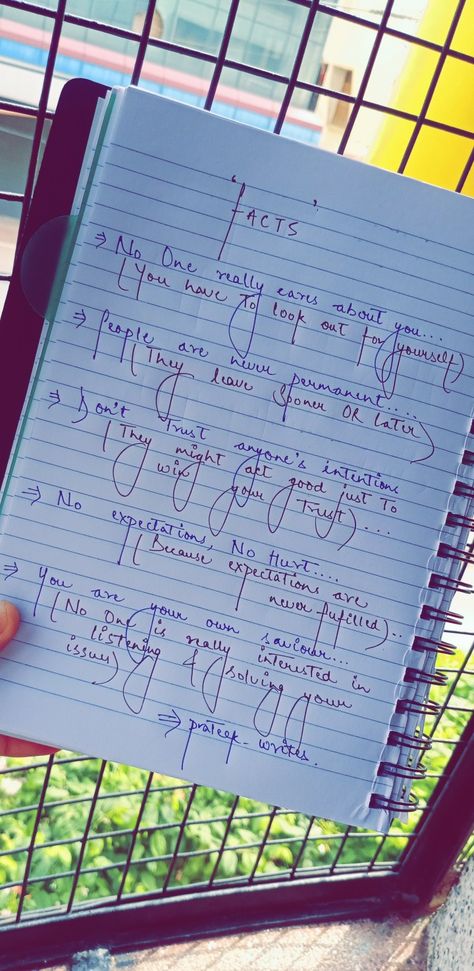 " FACTS "
⇒ No One really cares about you...
(You have To look out for yourself)
⇒ People are never permanent....
(They leave Sooner OR Later)
⇒ Don't Trust anyone's intentions
(They might act good just To
win your Trust)...
⇒ No expectations, No Hurt....
(Because expectations are
never fulfilled)..
⇒ You are your own saviour...
(No One is really interested in
listening & solving your
issues)
⇒ prateek-writes.